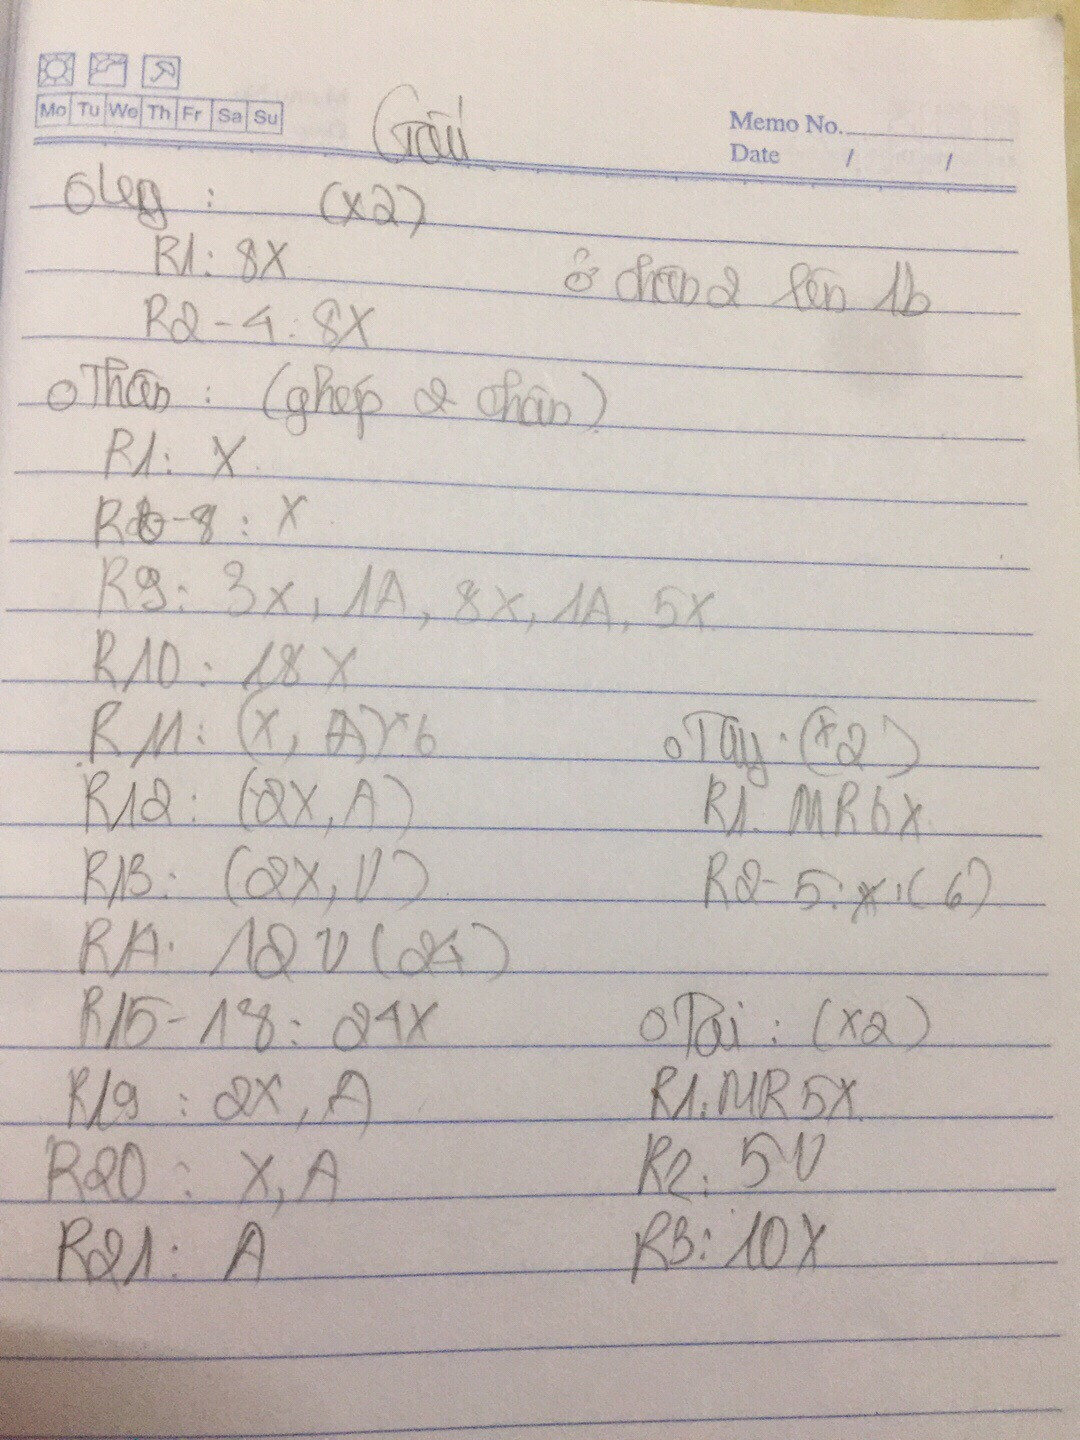 Mo Tu We Th Fr Sa Su
Gấu
Memo No.
Date / /
o Leg : (x2)
R1: 8X
ở chân 2 lên 1b
R2-4: 8X
o Thân : (ghép 2 chân)
R1: X
-8 : X
R9: 3x, 1A, 8x, 1A, 5x
R10: 18X
R11: (x, A)*6
R12: (2X, A)
R13: (2X, V)
R14: 12V (24)
R15-18: 24X
R19 : 2X, A
R20 : X, A
R21: A
o Tay: (x2)
R1. MR6X
R2-5: x:(6)
o Tai : (x2)
R1: MR5X
R2: 5V
R3: 10X